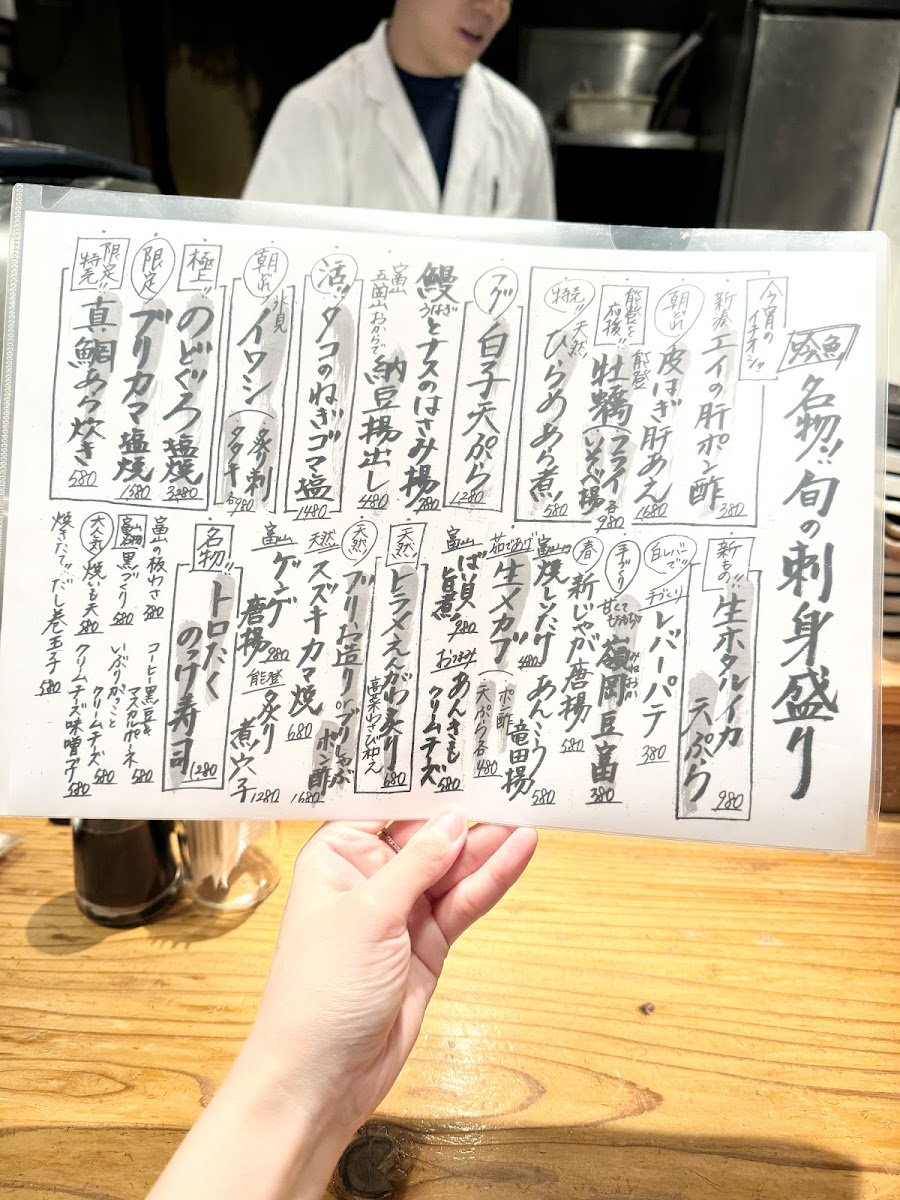 吟魚 名物!! 旬の刺身盛り
今宵のイチオシ!!
新湊 エイの肝ポン酢 380
朝どれ 皮はぎ肝あえ 1680
能登を応援!! 能登 牡蠣(フライ・いそべ揚 各980
特売!! 天然! ひらめあら煮 580
フグ! 白子天ぷら 1280
鰻とナスのはさみ揚 780
うなぎ
富山 五箇山おからで 納豆揚出し 480
活!! タコのねぎゴマ塩 1480
朝どれ 氷見 イワシ(炙り刺 タタキ 各980
極上!! のどぐろ塩焼 3280
限定! ブリカマ塩焼 1580
限定特売!! 真鯛あら炊き 580
新もの!! 生ホタルイカ天ぷら 980
白レバーで!! 手づくり レバーパテ 380
手づくり 甘くてもちもち 嶺岡豆富 380
みねおか
春 新じゃが唐揚 580
富山 焼しいたけ 480
あんこう竜田揚 580
茹であげ 生メカブ(ポン酢 天ぷら 各480
富山 ばい貝旨煮 980
おつまみ あんきもクリームチーズ 580
天然! ヒラメえんがわ炙り 高菜わさび和え 680
天然 ブリ(お造り・ブリしゃぶ・ポン酢 1680
天然 スズキカマ焼 680
富山 ゲンゲ唐揚 980
能登 炙り煮穴子 1280
名物!! トロたくのっけ寿司 1280
富山の板わさ 380
コーヒー黒豆&マスカルポーネ 580
富山名物 黒づくり 580
いぶりがっことクリームチーズ 580
大人気 焼いも天 580
クリームチーズ味噌漬 580
焼きたて!! だし巻玉子 580